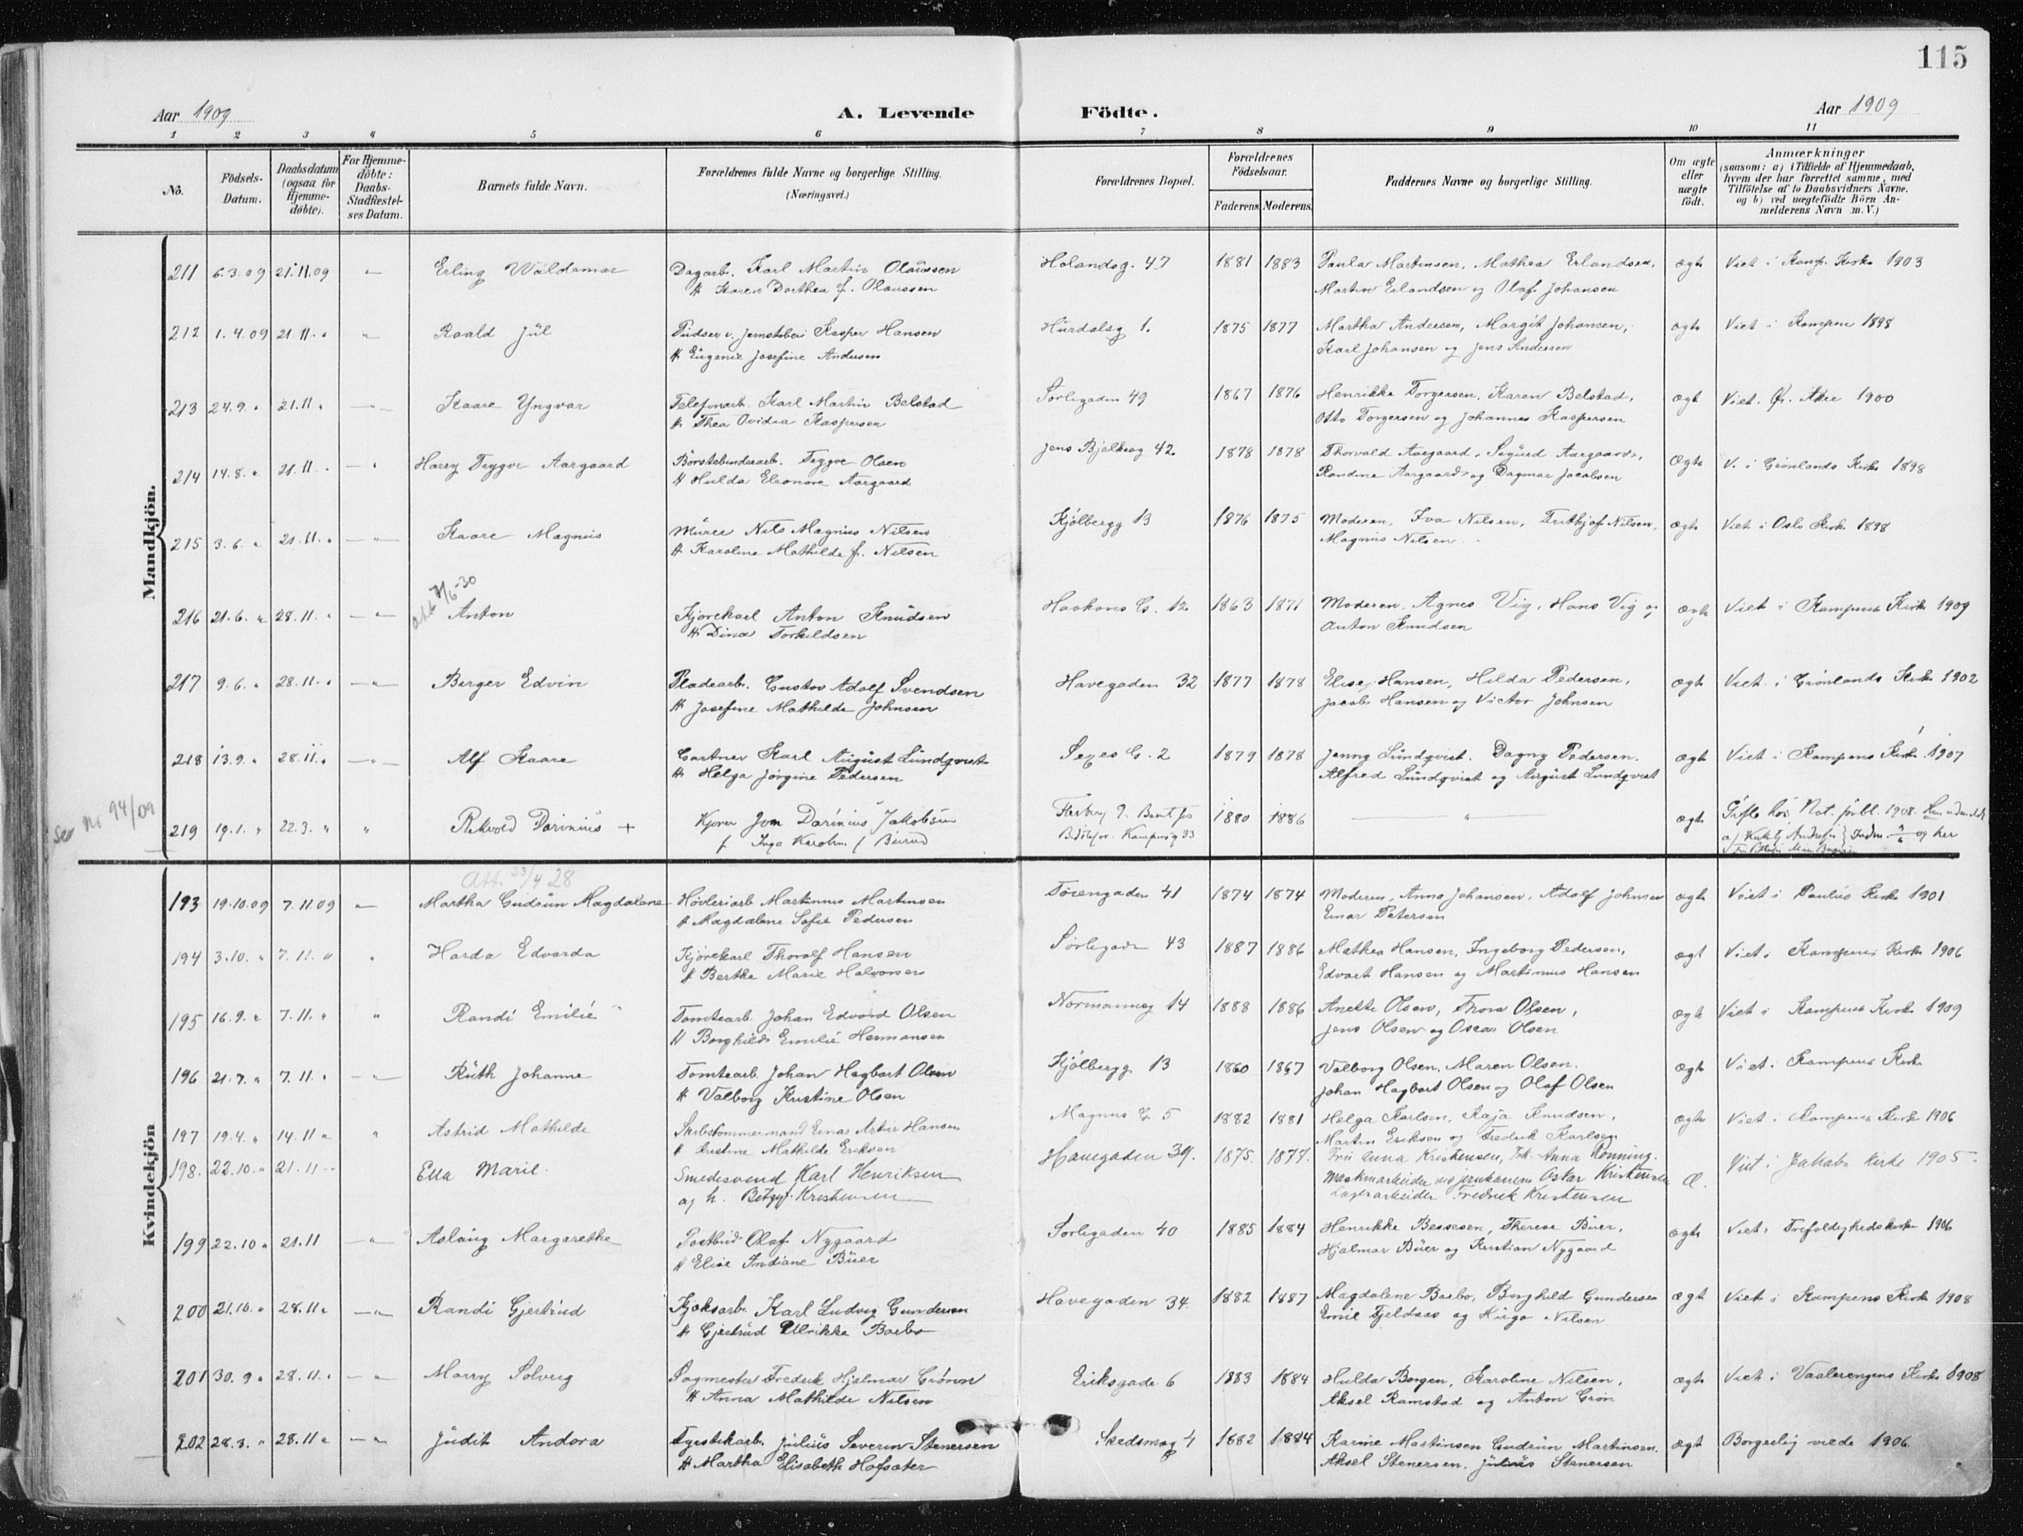 115
Aar 1909 A. Levende Födte. Aar 1909
1 2 3 4 5 6 7 8 9 10 11
No. Födsels-Datum. Daabsdatum (ogsaa for Hjemme-döbte). For Hjemme-döbte: Daabs-Stadfæstel-ses Datum. Barnets fulde Navn. Forældrenes fulde Navne og borgerlige Stilling. (Næringsvei.) Forældrenes Bopæl. Forældrenes Födselsaar. Faderens. Moderens. Faddernes Navne og borgerlige Stilling. Om ægte eller uægte födt. Anmærkninger (saasom: a) i Tilfælde af Hjemmedaab, hvem der har forrettet samme, med Tilföielse af to Daabsvidners Navne, og b) ved uægtefödte Börn An-melderens Navn m. V.)
Mandkjön.
211 6.3.09 21.11.09 -"- Erling Waldemar Dagarb. Karl Martin Olaussen Holandsg. 47 1881 1883 Paula Martinsen, Mathea Erlandsen, ægte Viet i Kamp. Kirke 1903
H Karen Dorthea f. Olaussen Martin Erlandsen og Olaf Johansen
212 1.4.09 21.11." " Roald Jül Kasper Hansen Hurdalsg 1. 1875 1877 Martha Andersen, Margit Johansen, ægte Viet i Kampen 1898
H Eugenie Josefine Andersen Karl Johansen og Jens Andersen
213 24.9." 21.11." -"- Kaare Yngvar Telefonarb. Karl Martin Belstad Sørligaden 49 1867 1876 Henrikke Torgersen, Karen Belstad, ægt Viet. Ø. Aker 1900
H Thea Ovidia Kaspersen Otto Torgersen og Johannes Kaspersen
214 14.8." 21.11." -" Harry Trygve Aargaard Børstebinderarb. Trygve Olsen Jens Bjelkesg 42. 1878 1878 Thorvald Aargaard, Sigurd Aargaard, ægte V. i Grønlands Kirke 1898
H Hulda Eleonore Aargaard Randine Aargaard og Dagmar Jacobsen
215 3.6." 21.11." -"- Kaare Magnus Murer Nils Magnus Nilsen Kjølbergg 13 1876 1875 Moderen, Eva Nilsen, Frithjof Nilsen, ægte Viet i Oslo Kirke 1898
H Karoline Mathilde f. Nilsen Magnus Nilsen
att 7/6-30
216 21.6." 28.11." -"- Anton Kjørekarl Anton Knudsen Haakons G. 12 1863 1871 Moderen, Agnes Vig, Hans Vig og ægte Viet i Kampens Kirke 1909
H Dina Torkildsen Anton Knudsen
217 9.6." 28.11." -"- Birger Edvin Pladearb. Gustav Adolf Svendsen Havegaden 32 1877 1878 Elise Hansen, Hilda Pedersen, ægt Viet i Grønlands Kirke 1902
H Josefine Mathilde Johnsen Jacob Hansen og Victor Johnsen
218 13.9." 28.11." -"- Alf Kaare Gartner Karl August Lundqvist Sexes G. 2 1879 1878 Jenny Lundqvist. Dagny Pedersen. ægte Viet i Kampens Kirke 1907
H Helga Jørgine Pedersen Alfred Lundqvist og August Lundqvist
Se Nr 94/09
219 19.1." 22.3." " Rikvold Darinius + Kjører Jom Darinius Jakobsen 1880 1886 " ægt 1908.
f Inga Karoline f Beirud Kampensg 33 og her
Kvindekjön
Att. 23/4 28
193 19.10.09 7.11.09 -"- Martha Gudrun Magdalene Høvleriarb Martinus Martinsen Tøiengaden 41 1874 1874 Moderen, Anna Johansen, Adolf Johnsen ægte Viet i Paulus Kirke 1901
H Magdalene Sofie Pedersen Einar Petersen
194 3.10." 7.11." " Harda Edvarda Kjørekarl Thoralf Hansen Sørligaden 43 1887 1886 Mathea Hansen, Ingeborg Pedersen, ægt Viet i Kampens Kirke 1906
H Berthe Marie Halvorsen Edvart Hansen og Martinius Hansen
195 16.9." 7.11." " Randi Emilie Tomtearb. Johan Edvard Olsen Normannsg 14 1888 1886 Anette Olsen, Thora Olsen, ægte Viet i Kampens Kirke 1909
H Borghild Emilie Hermansen Jens Olsen og Oscar Olsen
196 21.7." 7.11." -"- Ruth Johanne Tomtearb. Johan Hagbart Olsen Kjølbergg. 13 1860 1867 Valborg Olsen, Maren Olsen. ægte Viet i Kampens Kirke
H Valborg Kristine Olsen Johan Hagbart Olsen og Olaf Olsen
197 19.4." 14.11." " Astrid Mathilde Skibstømmermand Einar Artur Hansen Magnus G 5 1882 1881 Helga Karlsen, Kaja Knudsen, ægte Viet i Kampens Kirke 1906
H Kristine Mathilde Eriksen Martin Eriksen og Fredrik Karlsen
198. 22.10." 21.11 - Ella Marie. Smedesvend Karl Henriksen Havegaden 39. 1875. 1877. Fru Anna Kristensen, Frk. Anna Rønning. Æ. Viet i Jakobs Kirke 1905.
og h. Betzy f. Kristensen Maskinarbeider ved jernbanen Oskar Kristensen
Lagerarbeider Fredrik Kristensen
199 22.10" 21.11 -"- Aslaug Margarethe Postbud Olaf Nygaard Sørligaden 40 1885 1884 Henrikke Bessesen, Therese Buer, ægte Viet i Trefoldighedskirke 1906
H Elise Indiane Büer Hjalmar Büer og Kristian Nygaard
200 21.10." 28.11." -"- Randi Gjertrud Kjøksarb. Karl Ludvig Gundersen Havegaden 34. 1882 1887 Magdalene Barbo, Borghild Gundersen ægt Viet i Kampens Kirke 1908
H Gjertrud Ulrikke Barbo Emil Fjeldaas og Hugo Nilsen
201 30.9." 28.11." -"- Marry Solveig Sagmester Fredrik Hjalmar Grønn Eriksgade 6 1883 1884 Hulda Borgen, Karoline Nilsen, ægte Viet i Vaalerengens Kirke 1908
H Anna Mathilde Nilsen Aksel Ramstad og Anton Grøn
202 28.3." 28.11." -"- Judit Andora Fyrstikarb. Julius Severin Stenersen Skedsmog 4 1882 1884 Karine Martinsen Gudrun Martinsen. ægt Borgerlig viede 1906
H Martha Elisabeth Hofsæter Aksel Stenersen, Julius Stenersen